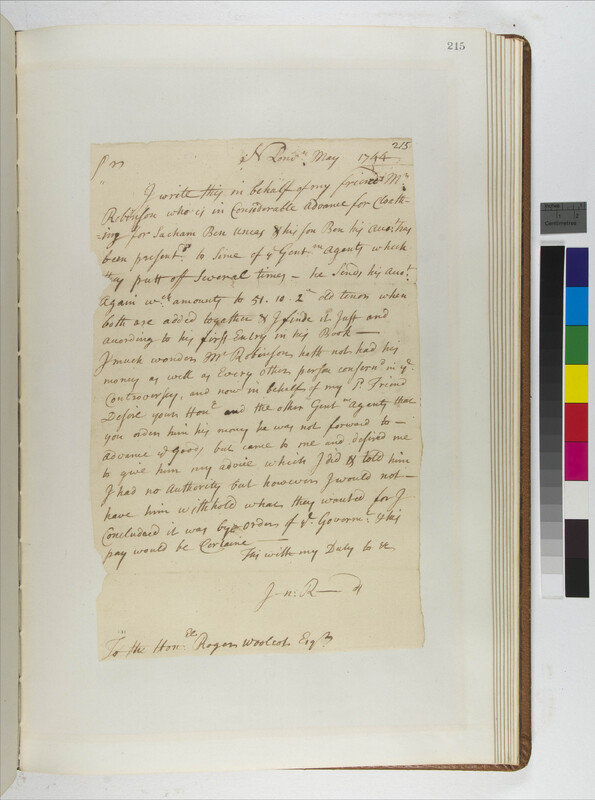 215
215
N Lond:n May 1744
Sr
I wrote this in behalf of my friend Mr
Robinson who is in Considerable Advance for Cloath-
ing for Sacham Ben Uncas & his son Ben his Acot: has
been present:d to Some of ye Gent:m Agents which
they putt off Several times - he Sends his Acot:
Again wch amounts to 51. 10. 2d old tenor when
both are added togather & I finde it Just and
Acording to his first Entry in his Book —
I much wonder Mr Robinson hath not had his
money as well as Every Other person consern'd in ye
Controversey, and now in behalf of my Sd Friend
Desire your Honr and the other Gent:m Agents that
you order him his money he was not forward to —
Advance ye goods but came to me and desired me
to give him my advice which I did & told him
I had no Authority but however I would not —
have him withhold what they wanted for I
Concludard it was bye orders of ye Governm:t & his
pay would be Certaine —
This with my Duty to &c
J n: R — d
To the Hon:ble Roger Woolcot Esqr